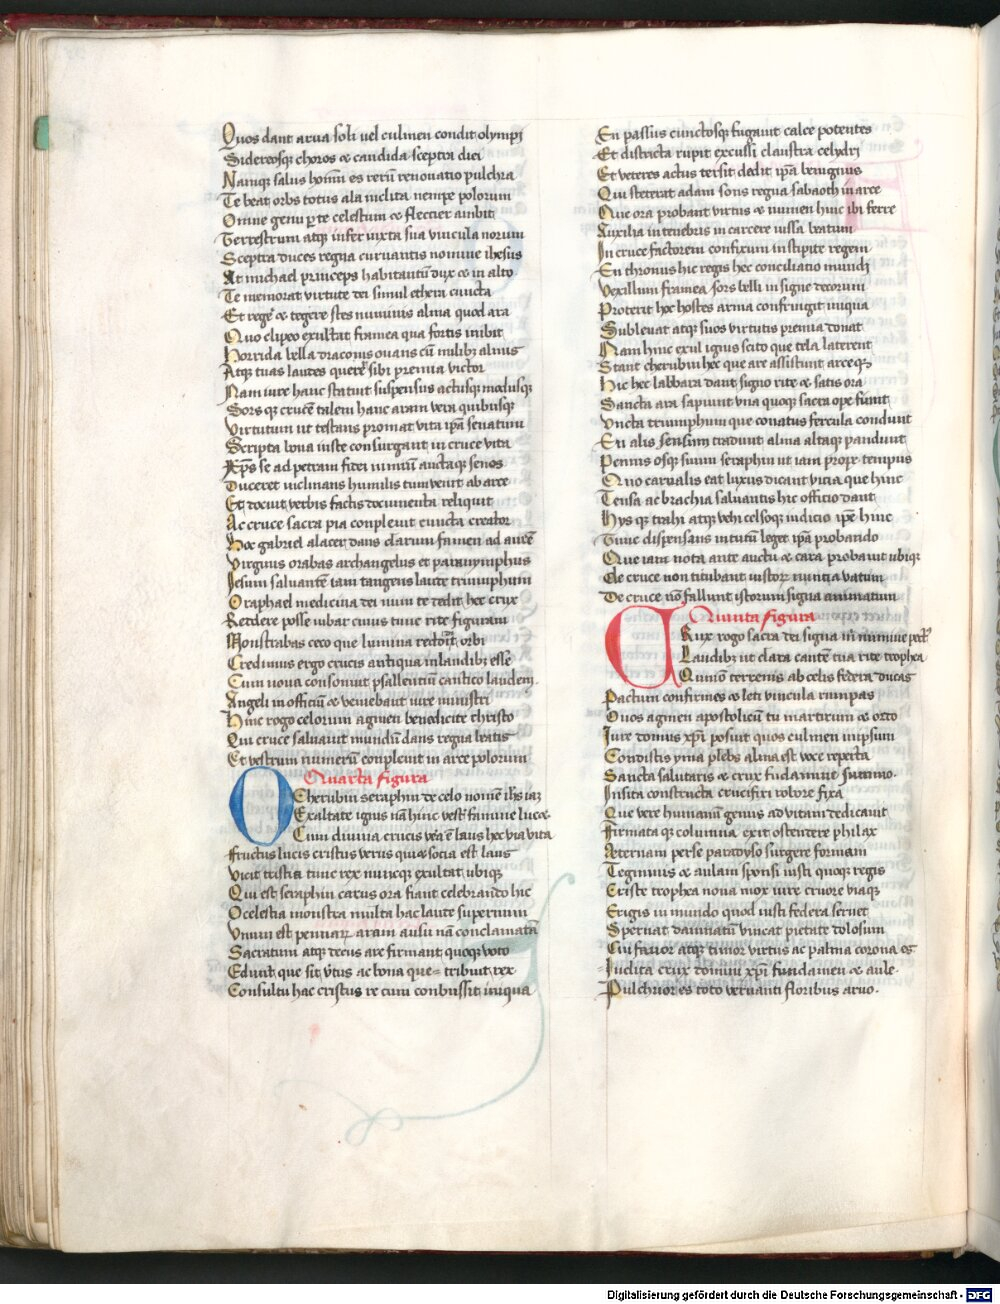 Quos dant arua soli uel culmen condit olympi
Sidereosq; choros & candida sceptra dici
Namq; salus homī es rerū renouatio pulchra
Te beat orbs totus ala inclita nempe polorum
Omne genu p te celestum & flectier ambit
Terrestrum atq; infer iuxta sua vincula norum
Sceptra duces regna curuantis nomine ihesus
At michael princeps habitantū dux & in alto
Te memorat virtute dei simul ethera cuncta
Et rege & tegere stes numinis alma quod ara
Quo clipeo exultat framea qua fortis inibit
Horrida bella draconis ouans cū milib; almis
Atq; tuas laudes querē sibi premia victor
Nam iure hanc statuit suspensus actusq; modusq;
Sors q; crucē talem hanc aram vera quibusq;
Virtutum ut testans promat vita ipā senatum
Scripta bona iuste consurgant in cruce vita
Xps se ad petram fidei nimiū auctaq; senos
Duceret inclinans humilis tum venit ab arce
Et docuit verbis factis documenta reliquit
Ac cruce sacra pia conpleuit cuncta creator
Hoc gabriel alacer dans clarum famen ad aurē
Virginis orabas archangelus et paranymphus
Jesum saluantē iam tangens laute triumphum
O raphael medicina dei num te dedit hec crux
Reddere posse iubar cuius tunc rite figuram
Monstrabas ceco que lumina reddūt orbi
Credimus ergo crucis antiqua in laudib; esse
Cum noua consonuit psallentiū cantico laudem.
Angeli in officiū & veniebant iure ministri
Hinc rogo celorum agmen benedicite christo
Qui cruce saluauit mundū dans regna beatis
Et vestrum numerū conpleuit in arce polorum
Quarta figura
O Cherubin seraphin de celo nomē ihs iaz
Exaltate ignis nā hinc vest famine luce
Cum diuina crucis vea ē laus hec via vita
Fructus lucis cristus verus quia socia est laus
Vicit tristia tunc rex nuncq; exultat ubiq;
Qui est seraphin carus ora fiant celebrando hic
O celestia monstra multa hac laute supernum
Vnum est pennarꝝ aram ausu nā conclamatā
Sacratum atq; decus are firmant quoq; voto
Edunt que sit v̄tus ac bona que tribuit rex
Consultu hac cristus re cum conbussit iniqua
En passus cunctosq; fugauit calce potentes
Et districta rupit excussi claustra celydri
Et veteres actus tersit dedit ipā benignus
Qui steterat adam sons regna sabaoth in arce
Que ora probant virtus & numen hinc ibi ferre
Auxilia in tenebris in carcere iussa beatum
In cruce factorem confixum in stipite regem
En thronus hic regis hec conciliatio mundi
Vexillum framea sors belli insigne decorum
Proterit hec hostes arma confringit iniqua
Subleuat atq; suos virtutis premia donat
Nam hinc exul ignis scito que tela laterent
Stant cherubin hec que are assistunt arceq;
Hic hec labbara dant signo rite & satis ora
Sancta ara sapiunt vna quoq; sacra ope sunt
Vncta triumphum que conatus fercula condunt
En alis sensim tradunt alma altaq; pandunt
Pennis osq; suum seraphin ut iam prope tempus
Quo carualis eat luxus dicant vicia que hinc
Tensa ac brachia saluantis hic officio dant
Hys q; trahi atq; vehi celsoq; indicio ipē hinc
Tunc dispensans intutū leget ipā probando
Que iam nota ante auctu & cara probauit ubiq;
De cruce non titubant iustor nuncia vatum
De cruce nō fallunt istorum signa animatum
Quinta figura
Crux rogo sacra dei signa in numine pect
Laudib; ut clara cantē tua rite trophea
Qumō terrenis ab celis federa ducas
Pactum confirmes & leti vincula rumpas
Quos agmen apostolicū tu martirum & ordo
Jure domus xpi posuit quos culmen in ipsum
Condistis yma plebs alma est voce reperta
Sancta salutaris & crux fudamine summo.
Insita constructa crucifixi robore fixa
Que vere humanū genus ad vitam dedicauit
Firmata q; columna exit ostentere philax
Aeternam per se paradyso surgere formam
Tegminis & aulam sponsi iusti quoq; regis
Criste trophea noua mox iure cruore viaq;
Erigis in mundo quod iusti federa seruet
Spernat damnatū vincat pietate dolosum
Cui fauor atq; timor virtus ac palma corona es
Inclita crux domini xpi fundamen & aule.
Pulchrior es toto vernanti floribus aruo.
Digitalisierung gefördert durch die Deutsche Forschungsgemeinschaft - DFG